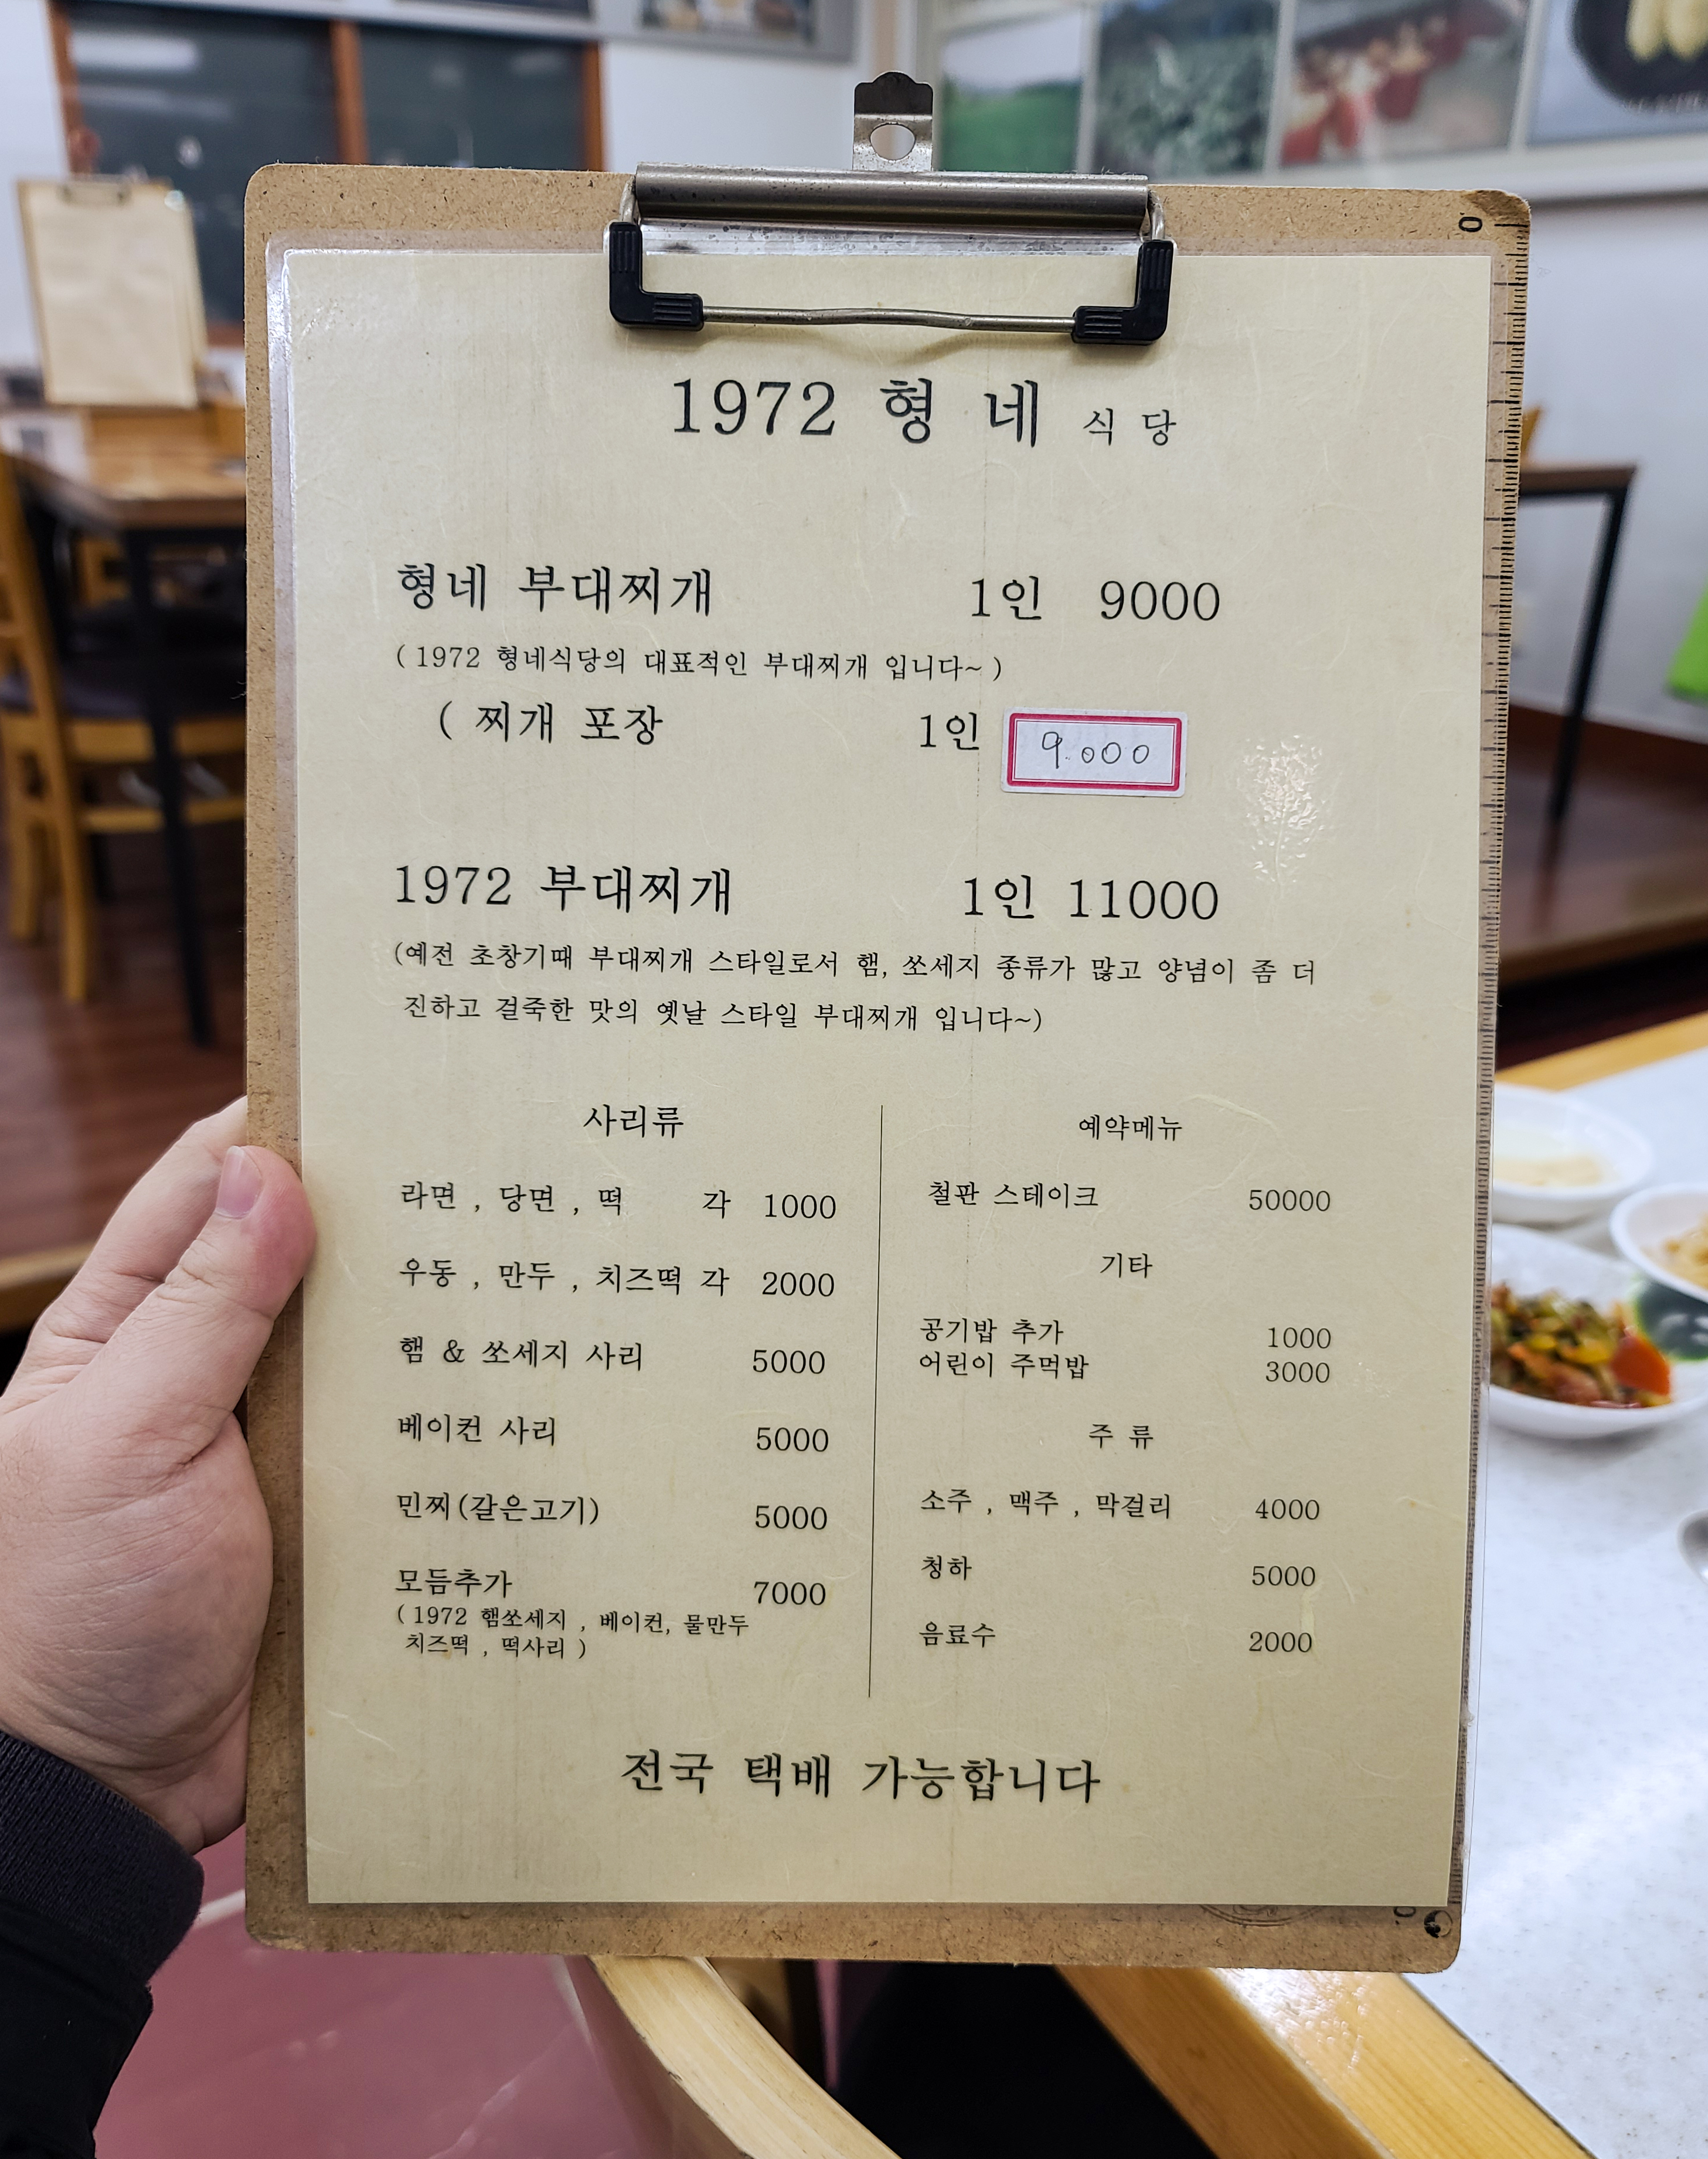 1972 형 네 식 당
형네 부대찌개 1인 9000
( 1972 형네식당의 대표적인 부대찌개 입니다~ )
( 찌개 포장 1인 9.000
1972 부대찌개 1인 11000
(예전 초창기때 부대찌개 스타일로서 햄, 쏘세지 종류가 많고 양념이 좀 더
진하고 걸죽한 맛의 옛날 스타일 부대찌개 입니다~)
사리류
라면 , 당면 , 떡 각 1000
우동 , 만두 , 치즈떡 각 2000
햄 & 쏘세지 사리 5000
베이컨 사리 5000
민찌(갈은고기) 5000
모듬추가 7000
( 1972 햄쏘세지 , 베이컨, 물만두
치즈떡 , 떡사리 )
예약메뉴
철판 스테이크 50000
기타
공기밥 추가 1000
어린이 주먹밥 3000
주 류
소주 , 맥주 , 막걸리 4000
청하 5000
음료수 2000
전국 택배 가능합니다
0